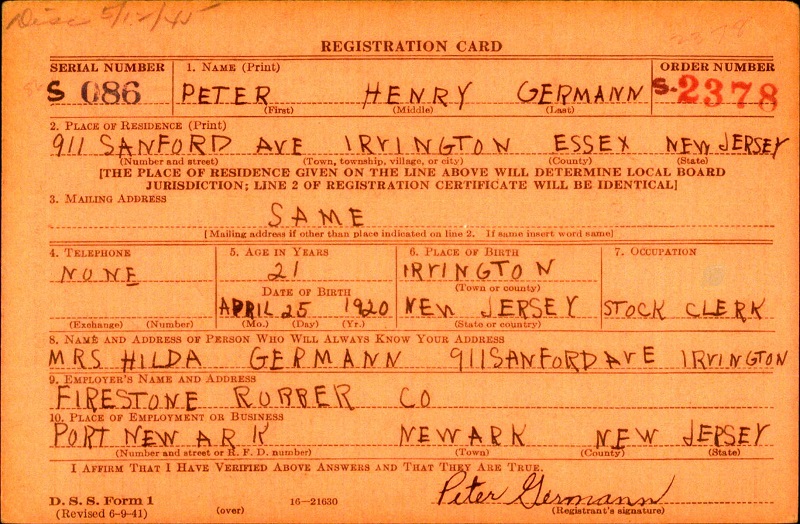 Disc 5/12/45
2378
REGISTRATION CARD
SERIAL NUMBER 1. NAME (Print) ORDER NUMBER
S 086 PETER HENRY GERMANN S-2378
(First) (Middle) (Last)
2. PLACE OF RESIDENCE (Print)
911 SANFORD AVE IRVINGTON ESSEX NEW JERSEY
(Number and street) (Town, township, village, or city) (County) (State)
[THE PLACE OF RESIDENCE GIVEN ON THE LINE ABOVE WILL DETERMINE LOCAL BOARD
JURISDICTION; LINE 2 OF REGISTRATION CERTIFICATE WILL BE IDENTICAL]
3. MAILING ADDRESS
SAME
[Mailing address if other than place indicated on line 2. If same insert word same]
4. TELEPHONE 5. AGE IN YEARS 6. PLACE OF BIRTH 7. OCCUPATION
NONE 21 IRVINGTON
DATE OF BIRTH (Town or county)
APRIL 25 1920 NEW JERSEY STOCK CLERK
(Exchange) (Number) (Mo.) (Day) (Yr.) (State or country)
8. NAME AND ADDRESS OF PERSON WHO WILL ALWAYS KNOW YOUR ADDRESS
MRS HILDA GERMANN 911 SANFORD AVE IRVINGTON
9. EMPLOYER'S NAME AND ADDRESS
FIRESTONE RUBBER CO
10. PLACE OF EMPLOYMENT OR BUSINESS
PORT NEWARK NEWARK NEW JERSEY
(Number and street or R. F. D. number) (Town) (County) (State)
I AFFIRM THAT I HAVE VERIFIED ABOVE ANSWERS AND THAT THEY ARE TRUE.
Peter Germann
D. S. S. Form 1 16—21630 (Registrant's signature)
(Revised 6-9-41) (over)